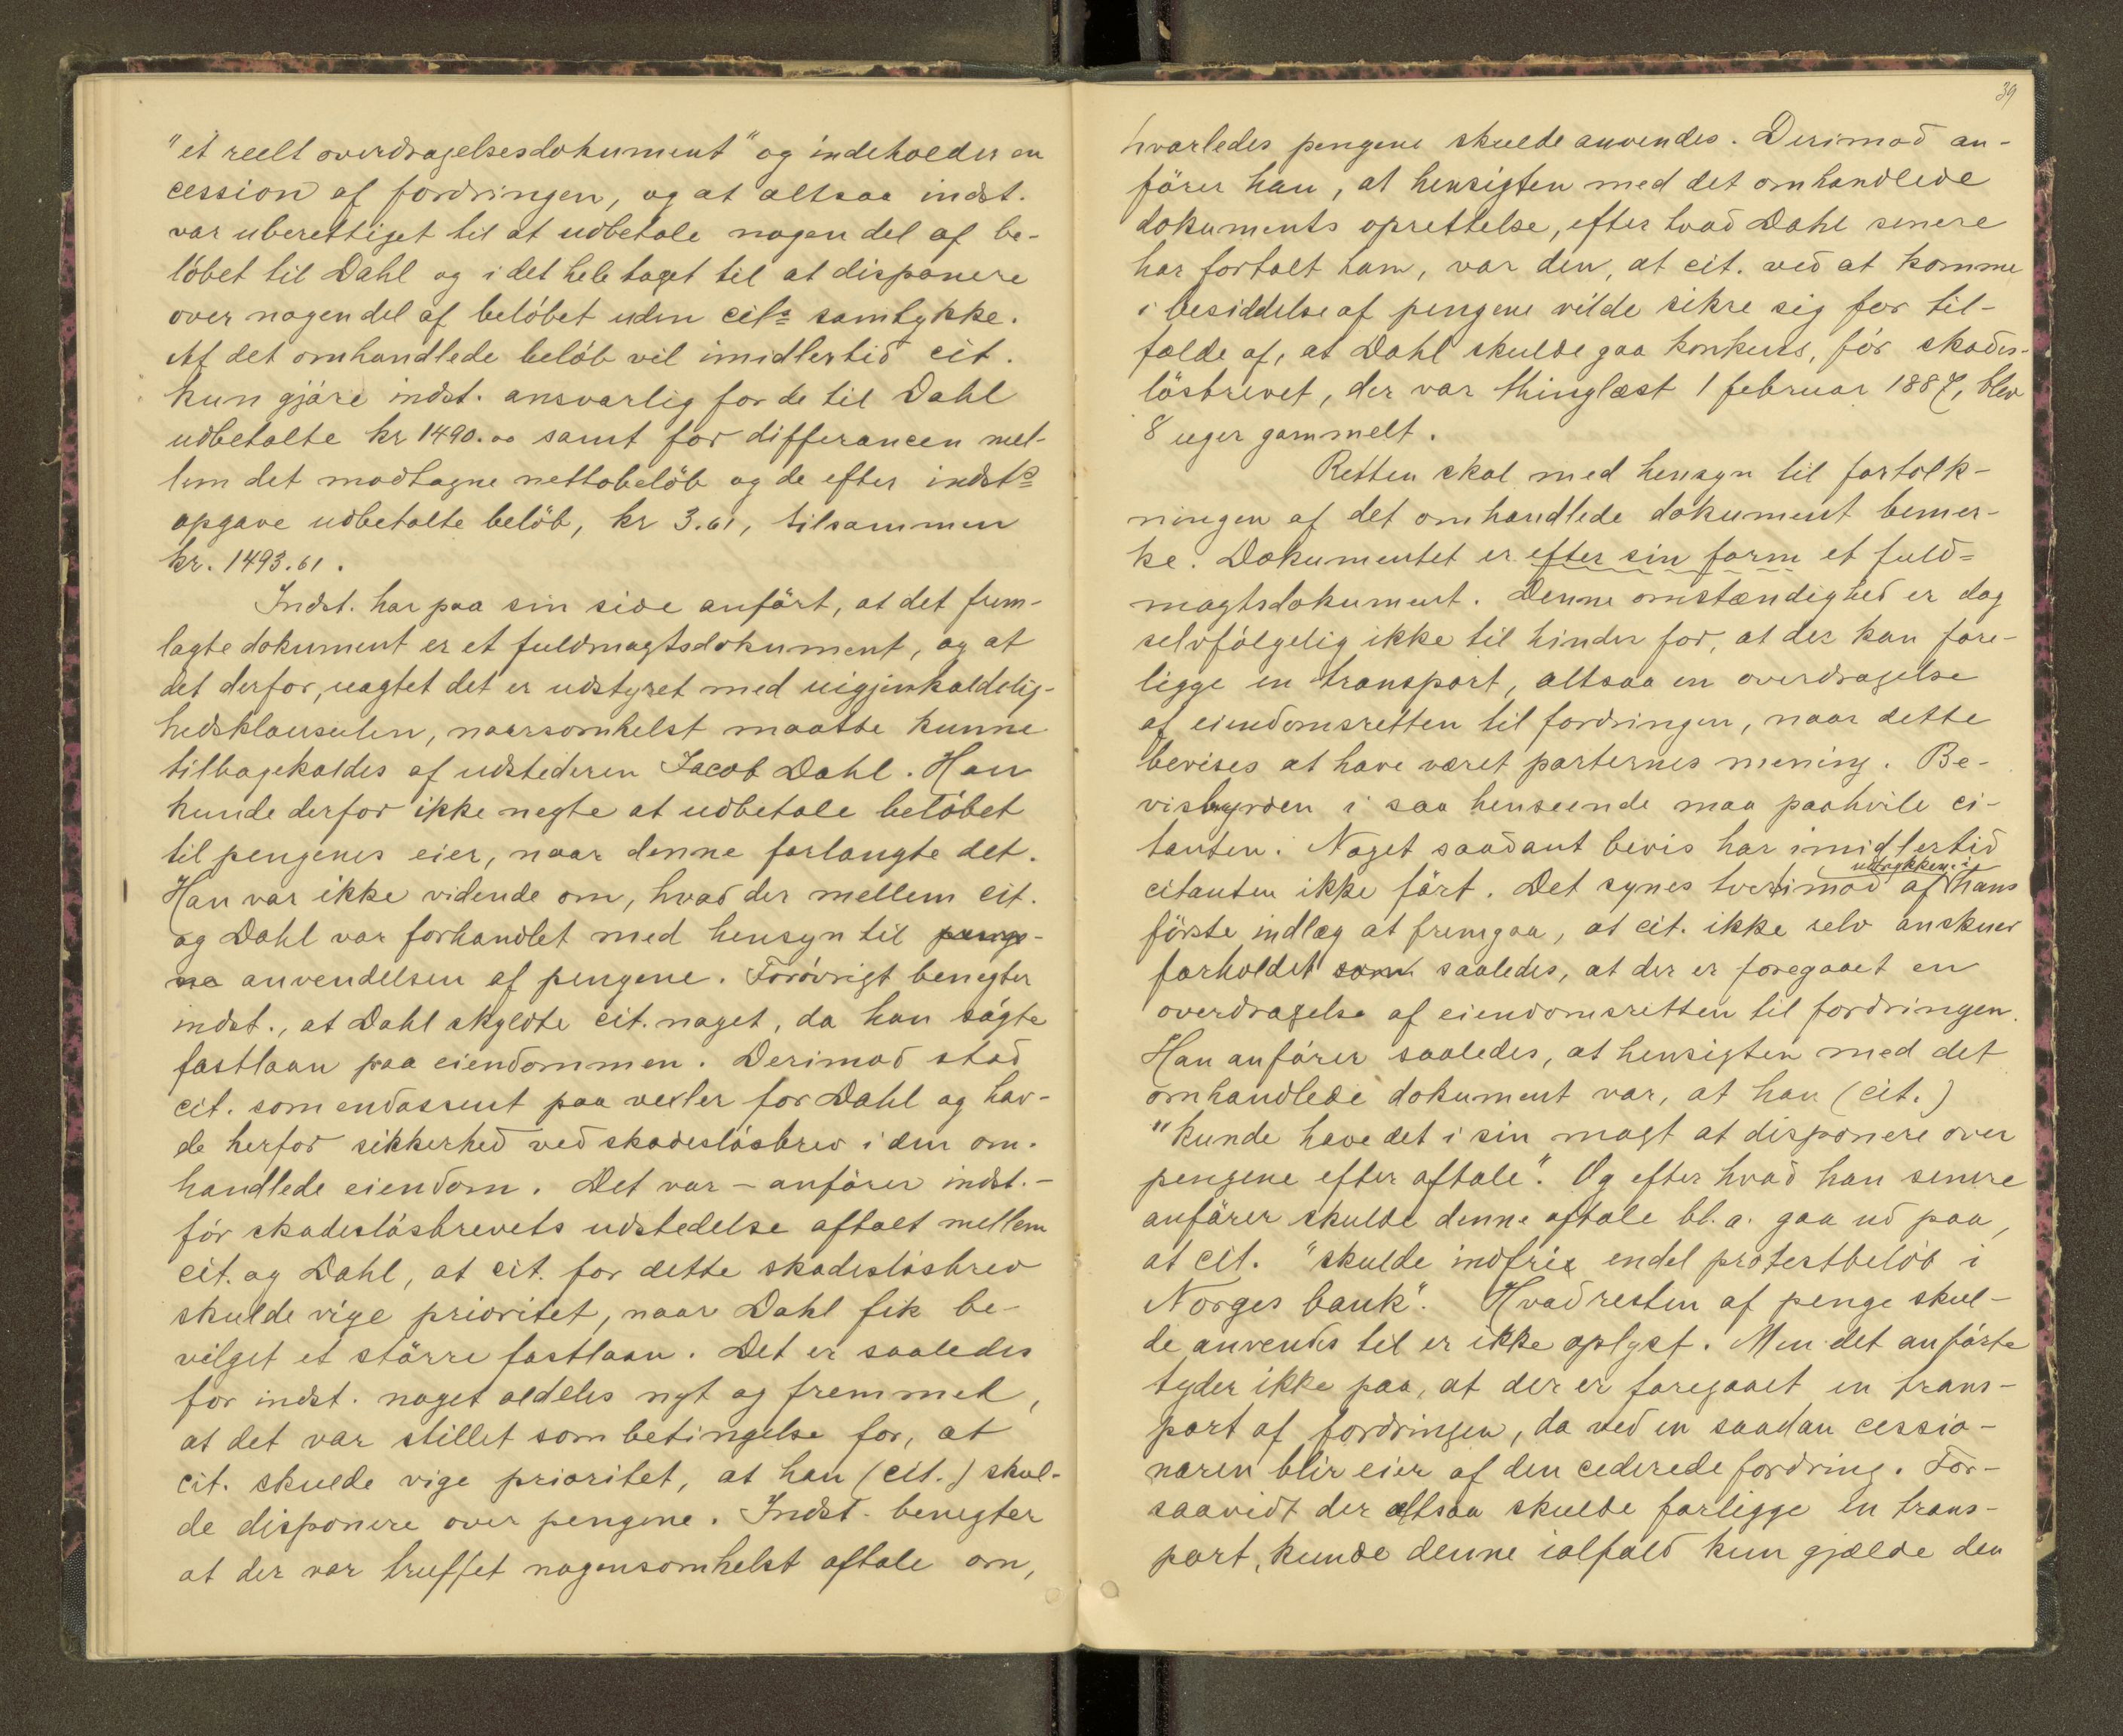 "et reelt overdragelsesdokument" og indeholder en
cession af fordringen, og at altsaa indst.
var uberettiget til at udbetale nogen del af be-
løbet til Dahl og i det hele taget til at disponere
over nogen del af beløbet uden cits samtykke.
Af det omhandlede beløb vil imidlertid cit.
kun gjøre indst. ansvarlig for de til Dahl
udbetalte kr 1490.00 samt for differancen mel-
lem det modtagne nettobeløb og de efter indsts
opgave udbetalte beløb, kr 3.61, tilsammen
kr. 1493.61.
Indst. har paa sin side anført, at det frem-
lagte dokument er et fuldmagtsdokument, og at
det derfor, uagtet det er udstyret med uigjenkaldelig-
hedsklausulen, naarsomhelst maatte kunne
tilbagekaldes af udstederen Jacob Dahl. Han
kunde derfor ikke negte at udbetale beløbet
til pengenes eier, naar denne forlangte det.
Han var ikke vidende om, hvad der mellem cit.
og Dahl var forhandlet med hensyn til penge-
ne anvendelsen af pengene. Forøvrigt benegter
indst., at Dahl skyldte cit. noget, da han søgte
fastlaan paa eiendommen. Derimod stod
cit. som endossent paa vexler for Dahl og hav-
de herfor sikkerhed ved skadesløsbrev i den om-
handlede eiendom. Det var - anfører indst. -
før skadesløsbrevets udstedelse aftalt mellem
cit. og Dahl, at cit. for dette skadesløsbrev
skulde vige prioritet, naar Dahl fik be-
vilget et større fastlaan. Det er saaledes
for indst. noget aldeles nyt og fremmed,
at det var stillet som betingelse for, at
cit. skulde vige prioritet, at han (cit.) skul-
de disponere over pengene. Indst. benegter
at der var truffet nogensomhelst aftale om,
39
hvorledes pengene skulde anvendes. Derimod an-
fører han, at hensigten med det omhandlede
dokuments oprettelse, efter hvad Dahl senere
har fortalt ham, var den, at cit. ved at komme
i besiddelse af pengene vilde sikre sig for til-
fælde af, at Dahl skulde gaa konkurs, før skades-
løsbrevet, der var thinglæst 1 februar 1887, blev
8 uger gammelt.
Retten skal med hensyn til fortolk-
ningen af det omhandlede dokument bemer-
ke. Dokumentet er efter sin form et fuld-
magtsdokument. Denne omstændighed er dog
selvfølgelig ikke til hinder for, at der kan fore-
ligge en transport, altsaa en overdragelse
af eiendomsretten til fordringen, naar dette
bevises at have været parternes mening. Be-
visbyrden i saa henseende maa paahvile ci-
tanten. Noget saadant bevis har imidlertid
citanten ikke ført. Det synes tvertimod af udtrykkene i hans
første indlæg at fremgaa, at cit. ikke selv anskuer
forholdet som saaledes, at der er foregaaet en
overdragelse af eiendomsretten til fordringen.
Han anfører saaledes, at hensigten med det
omhandlede dokument var, at han (cit.)
"kunde have det i sin magt at disponere over
pengene efter aftale". Og efter hvad han senere
anfører skulde denne aftale bl. a. gaa ud paa,
at cit. "skulde indfrie endel protestbeløb i
Norges bank". Hvad resten af penge skul-
de anvendes til er ikke oplyst. Men det anførte
tyder ikke paa, at der er foregaaet en trans-
port af fordringen, da ved en saadan cessio-
naren blir eier af den cederede fordring. For-
saavidt der altsaa skulde forligge en trans-
port, kunde denne ialfald kun gjælde den